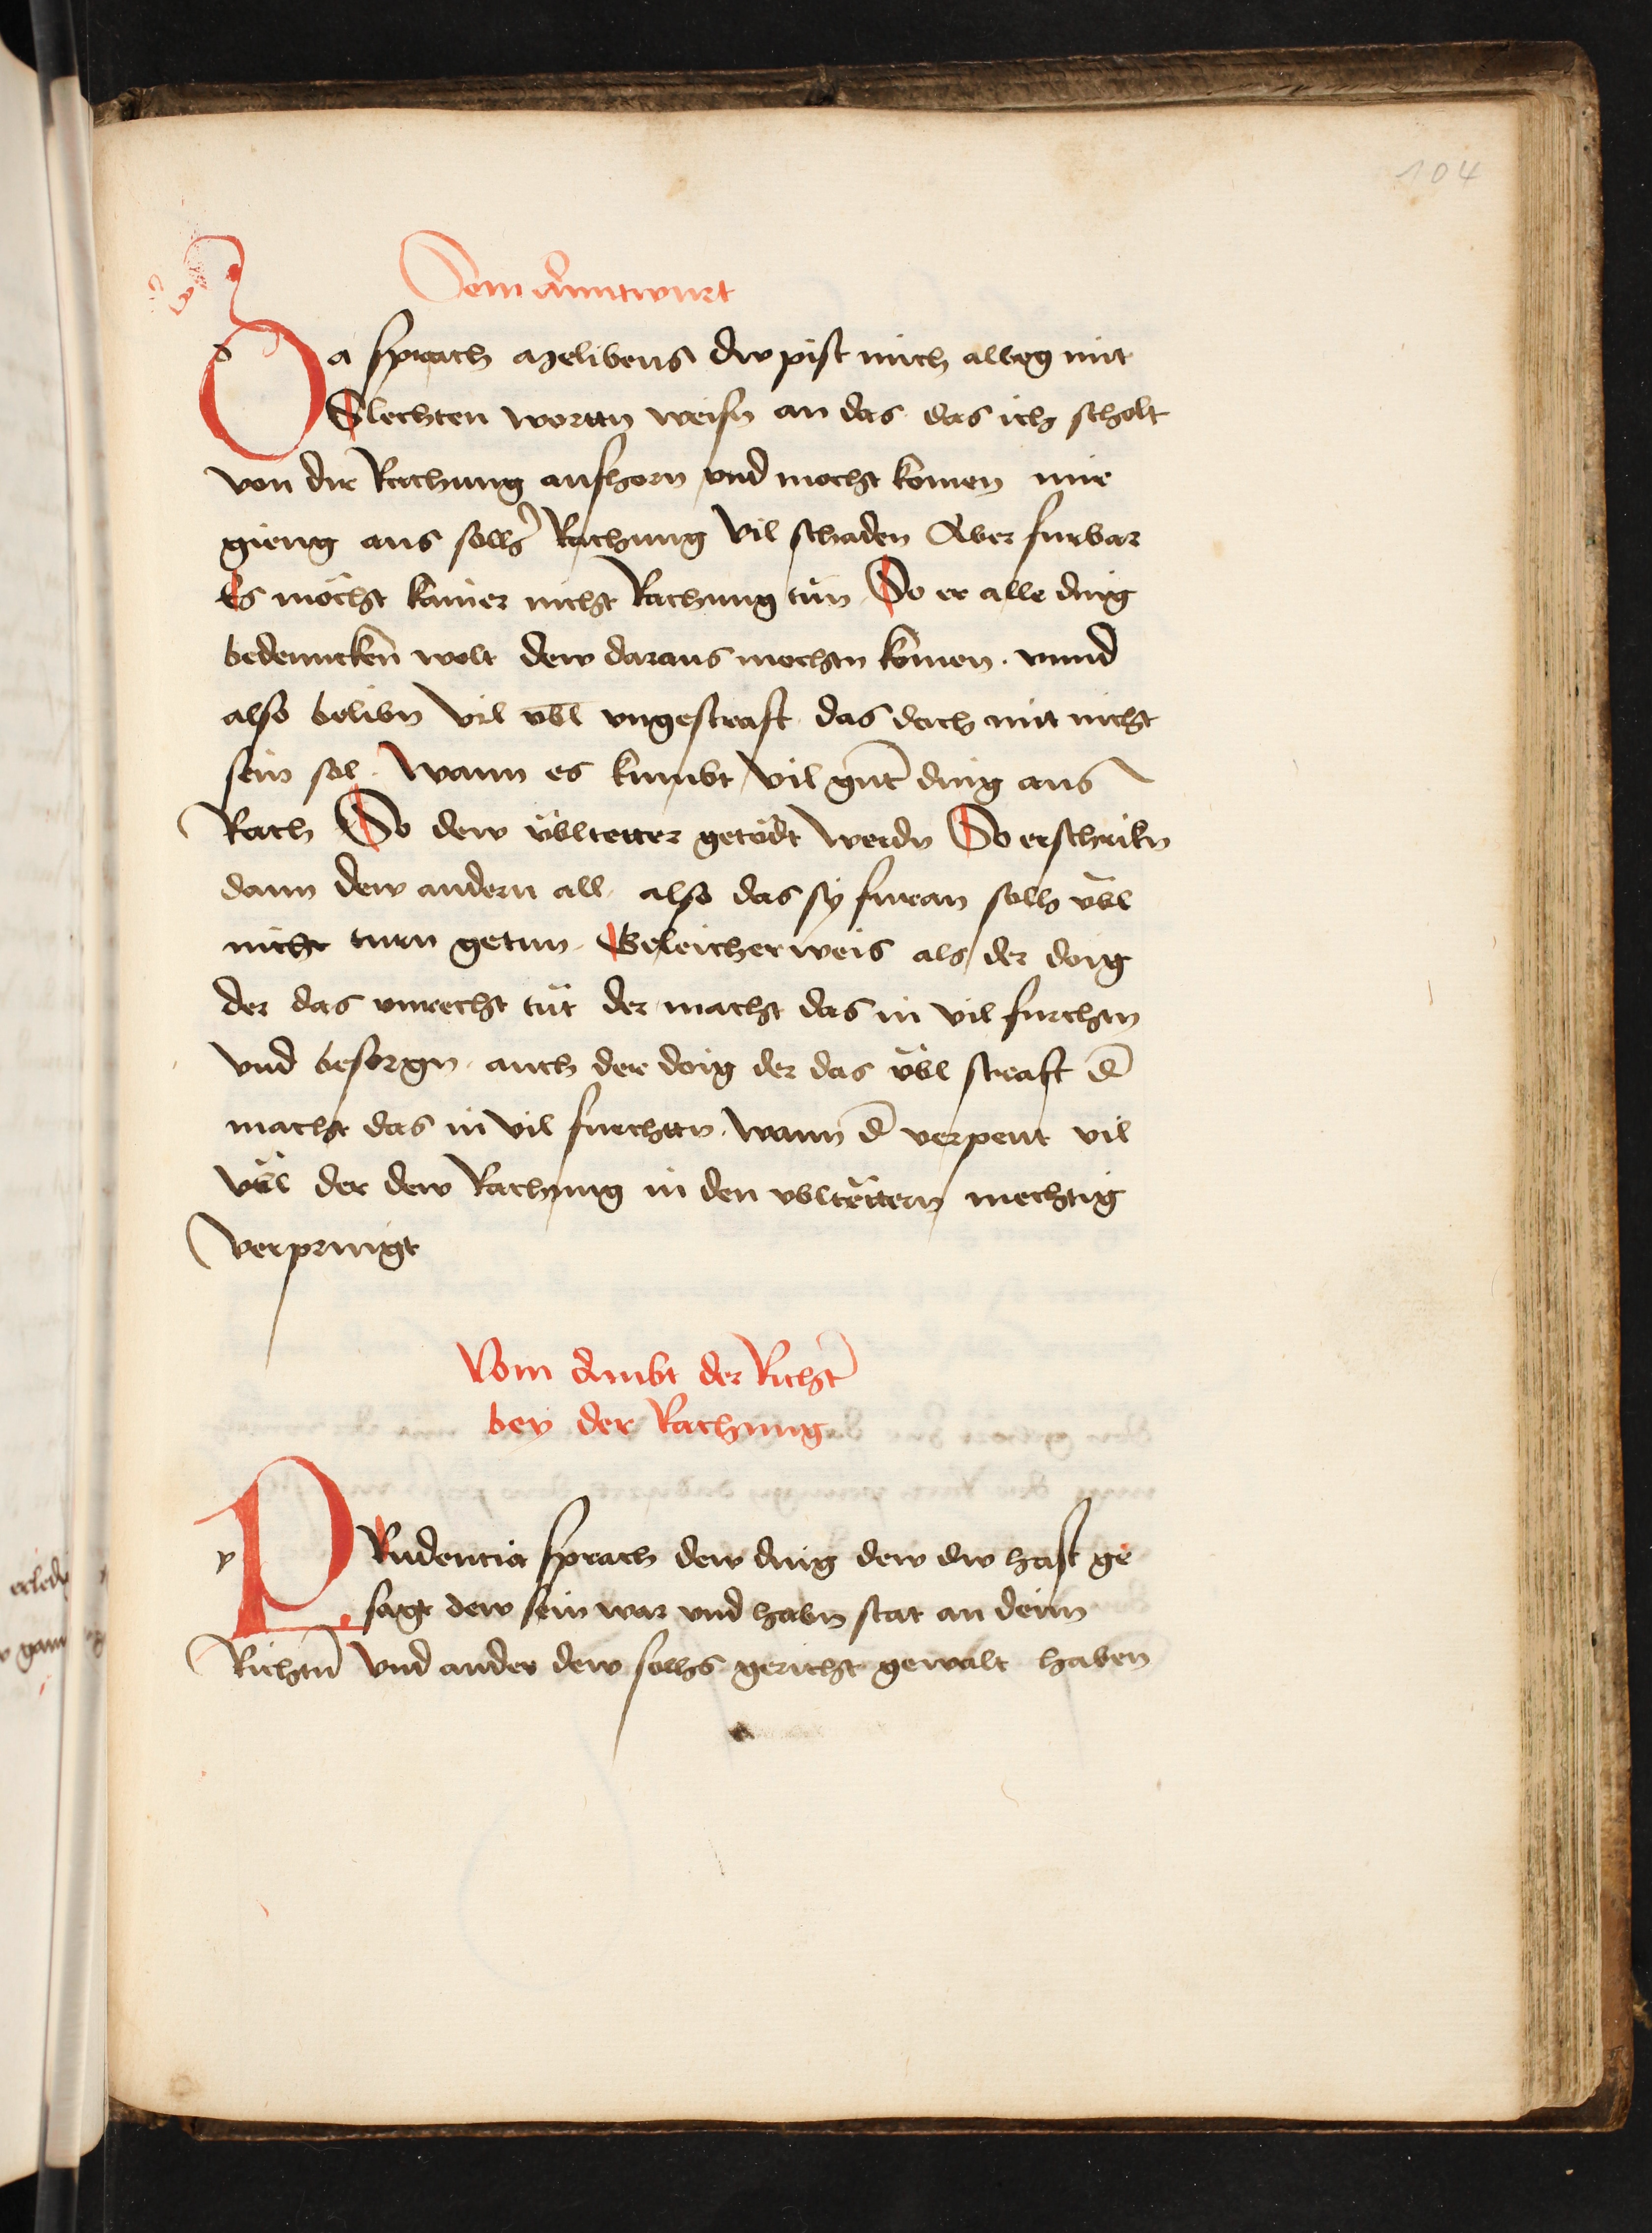 104
Sein Anntwurt
Da sprach Melibeus dw pist mich albeg mit
Slechten worttn weisn an das das ich scholt
von der Rachung aufhorn vnd mocht komen mir
gieng aus sollich' Rachung vil schaden Aber furbar
Es möcht kainer nicht Rachung tün So er alle ding
bedennckēn wolt dew daraus mochtn komen. vnnd
also belibn vil v̈bl vngestraft das doch mit nicht
sein sol. Wann es kumbt vil gūt ding aus
Rach So dew v̈bltetter getödt werdn So erschrikn
dann dew andern all also das sy furan sollich v̈bl
nicht turn getun. Geleicherweis als der doig
der das vnrecht tüt der macht das in vil furchtn
vnd besorgn. auch der doig der das v̈bl straft d'
macht das in vil furchttn. wann d' verpent vil
v̈bl der dew Rachung in den vbltëttern mechtig
verpringt
Vom Ambt der Richt'
bey der Rachung
p
PRudentia sprach dew ding dew dw hast ge
sagt dew sein war vnd habn stat an deinn
Richtn̄ vnd ander dew solhs gericht gewalt haben